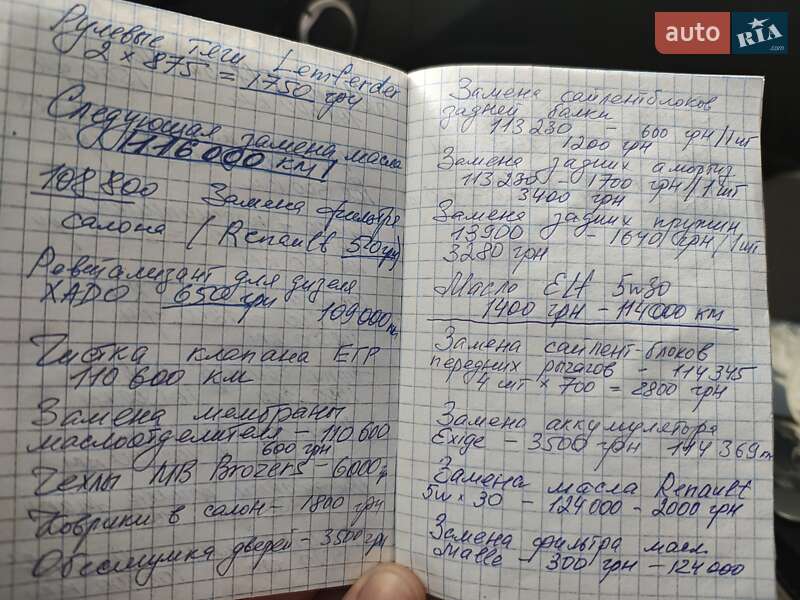 Рулевые тяги Lemferder
2 × 875 = 1750 грн
Следующая замена масла
116 000 км!
108 800 Замена фильтра
салона (Renault 520 грн)
Ревитализант для дизеля
ХАДО 650 грн 109000
Чистка клапана ЕГР
110 600 км
Замена мембраны
маслоотделителя – 110 600
600 грн
Чехлы MB Brozers – 6000 г
Коврики в салон – 1800 грн
Обесшумка дверей – 3500 грн
auto RIA.com
Замена сайлентблоков
задней балки
113 230 – 600 грн/1 шт
1200 грн
Замена задних аморыз
113 230 – 1700 грн/1 шт
3400 грн
Замена задних пружин
13900 – 1640 грн/1 шт.
3280 грн
Масло ЕЛФ 5w30
1400 грн – 114000 км
Замена сайлент-блоков
передних рычагов – 114 345
4 шт × 700 = 2800 грн
Замена аккумулятора
Exige – 3500 грн 114 369
Замена масла Renault
5w × 30 – 124000 – 2000 грн
Замена фильтра масл.
Malle – 300 грн – 124000